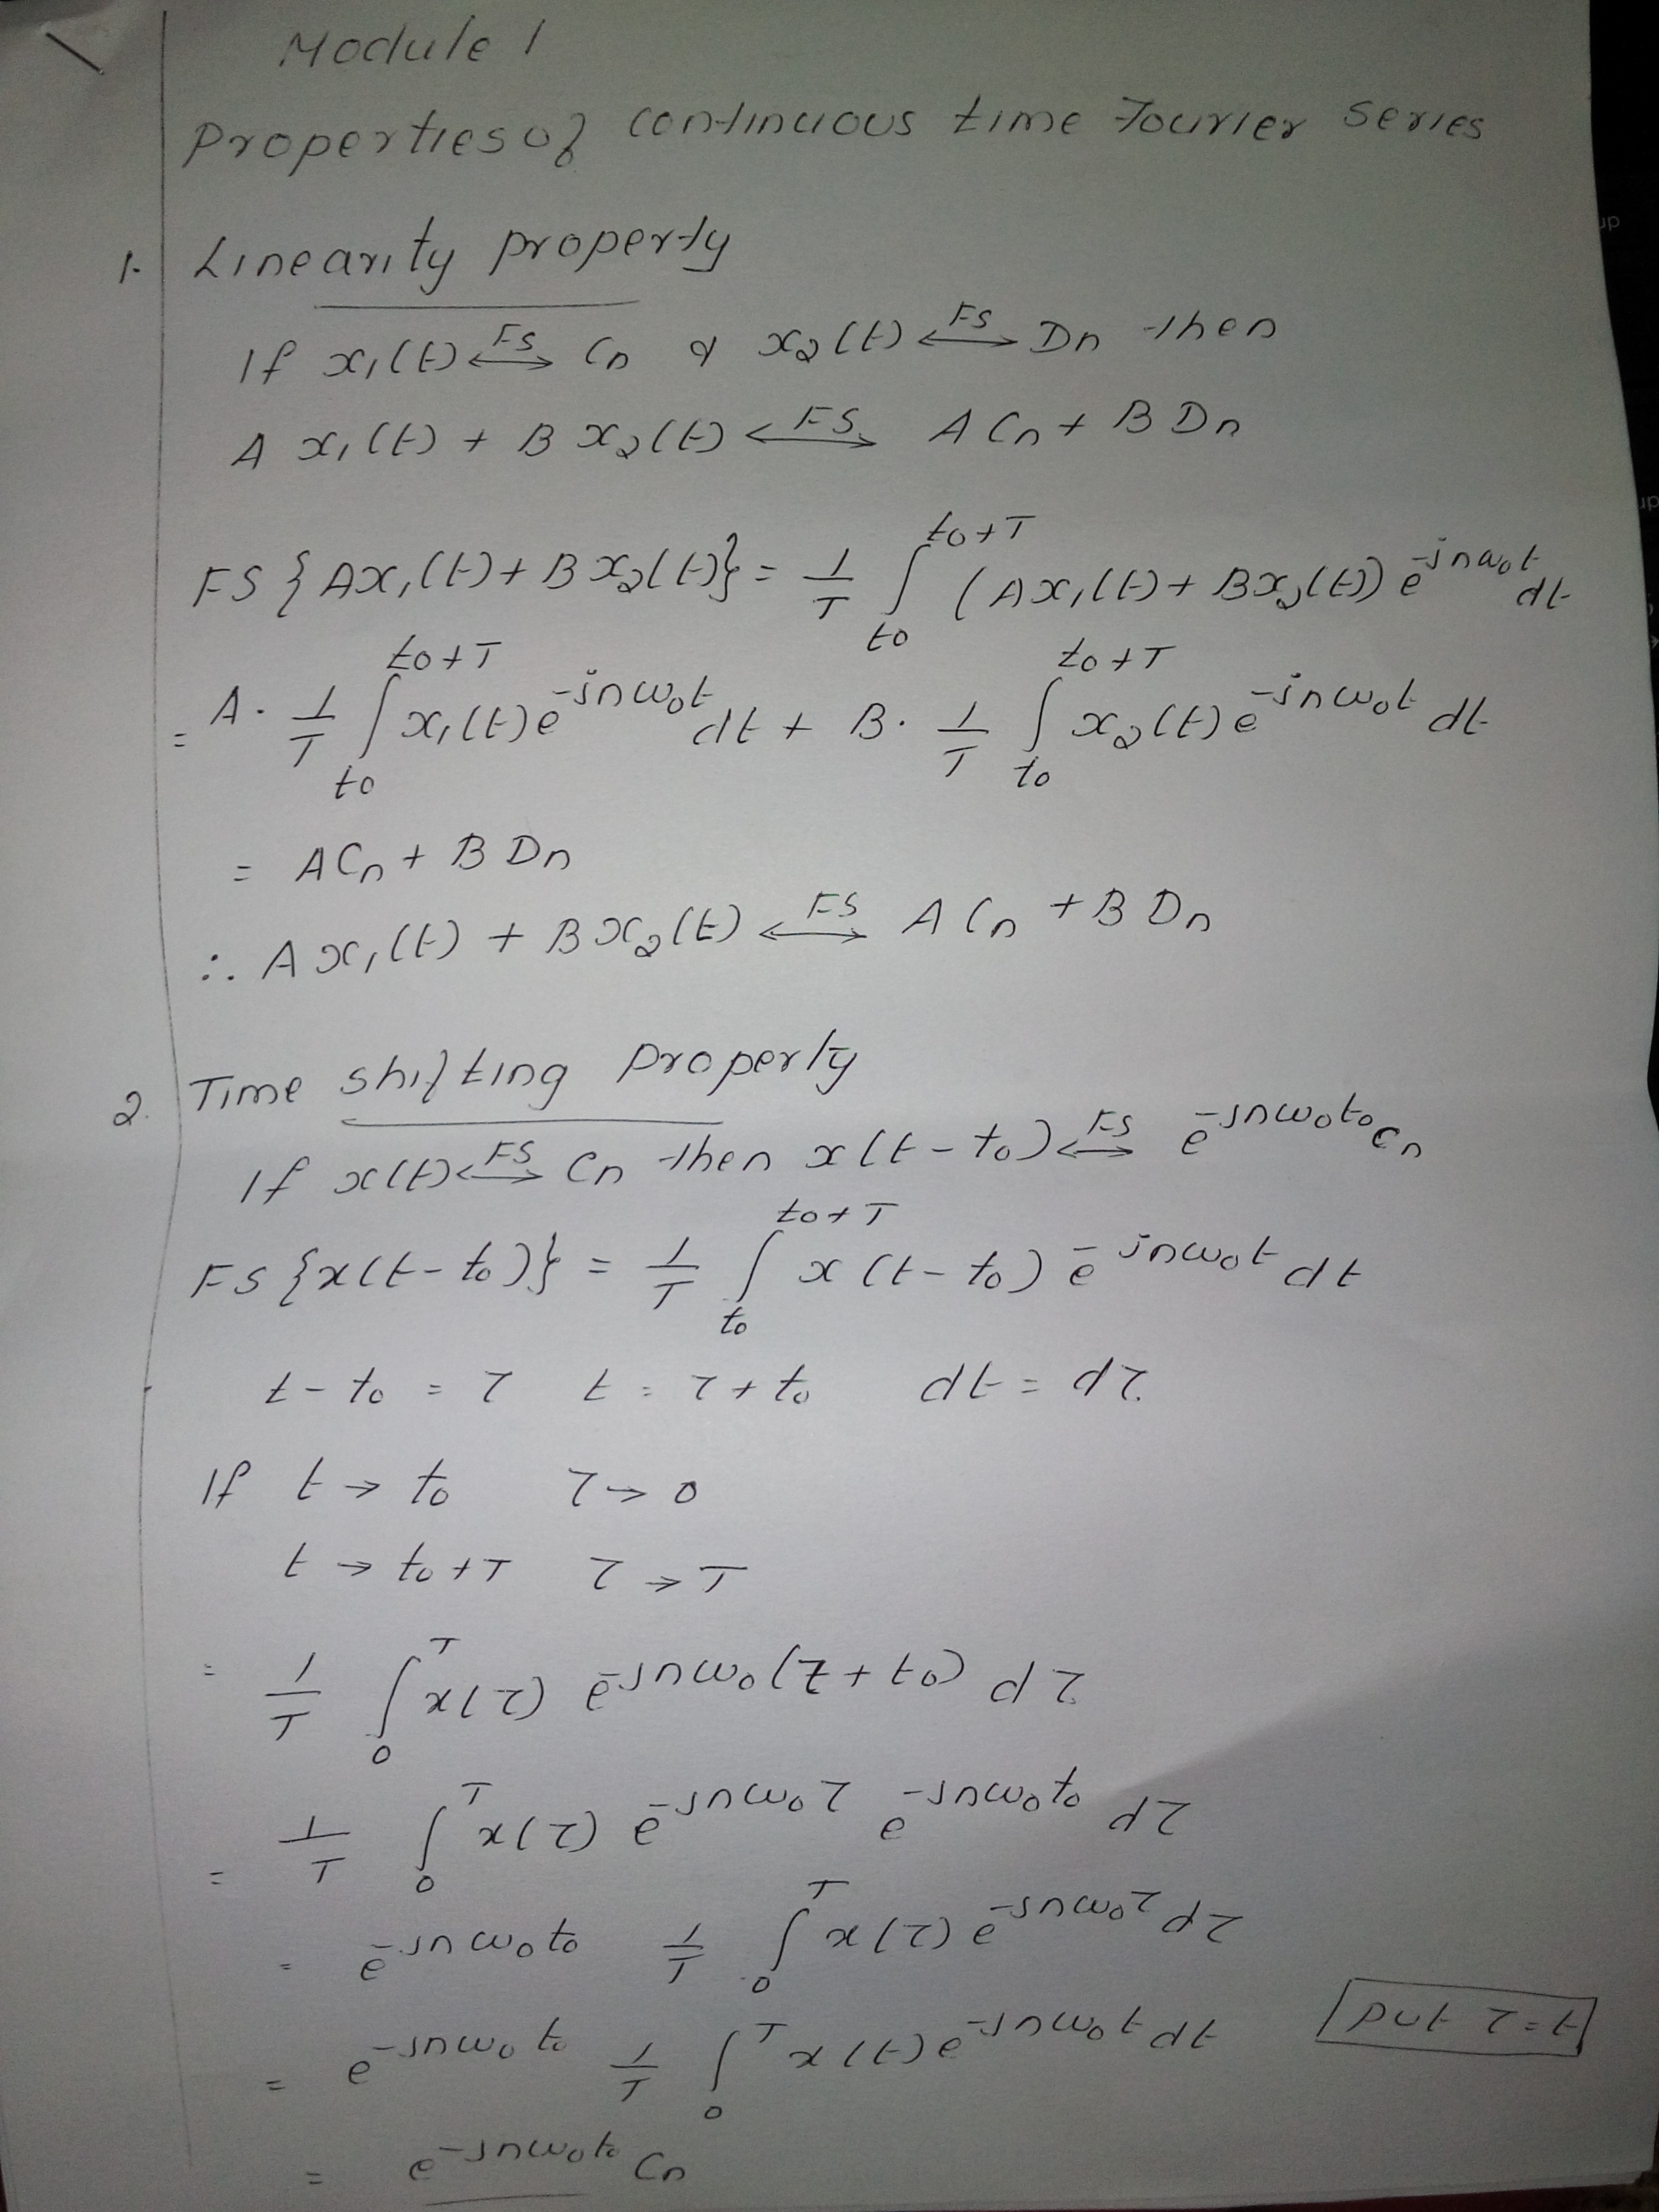 Module 1
Properties of continuous time Fourier series
1. Linearity property
If x₁(t) ⟷FS Cn & x₂(t) ⟷FS Dn then
A x₁(t) + B x₂(t) ⟷FS A Cn + B Dn
FS {Ax₁(t) + B x₂(t)} = 1/T ∫_{t0}^{t0+T} (Ax₁(t) + Bx₂(t)) e^{-jnω₀t} dt
= A. 1/T ∫_{t0}^{t0+T} x₁(t) e^{-jnω₀t} dt + B. 1/T ∫_{t0}^{t0+T} x₂(t) e^{-jnω₀t} dt
= ACn + B Dn
∴ A x₁(t) + B x₂(t) ⟷FS A Cn + B Dn
2. Time shifting property
If x(t) ⟷FS Cn then x(t - t₀) ⟷FS e^{-jnω₀t₀} Cn
FS {x(t - t₀)} = 1/T ∫_{t₀}^{t₀+T} x(t - t₀) e^{-jnω₀t} dt
t - t₀ = τ t = τ + t₀ dt = dτ.
If t → t₀ τ → 0
t → t₀ + T τ → T
= 1/T ∫_{0}^{T} x(τ) e^{-jnω₀(τ + t₀)} dτ
= 1/T ∫_{0}^{T} x(τ) e^{-jnω₀τ} e^{-jnω₀t₀} dτ
= e^{-jnω₀t₀} 1/T ∫_{0}^{T} x(τ) e^{-jnω₀τ} dτ
= e^{-jnω₀t₀} 1/T ∫_{0}^{T} x(t) e^{-jnω₀t} dt put τ = t
= e^{-jnω₀t₀} Cn
up
up